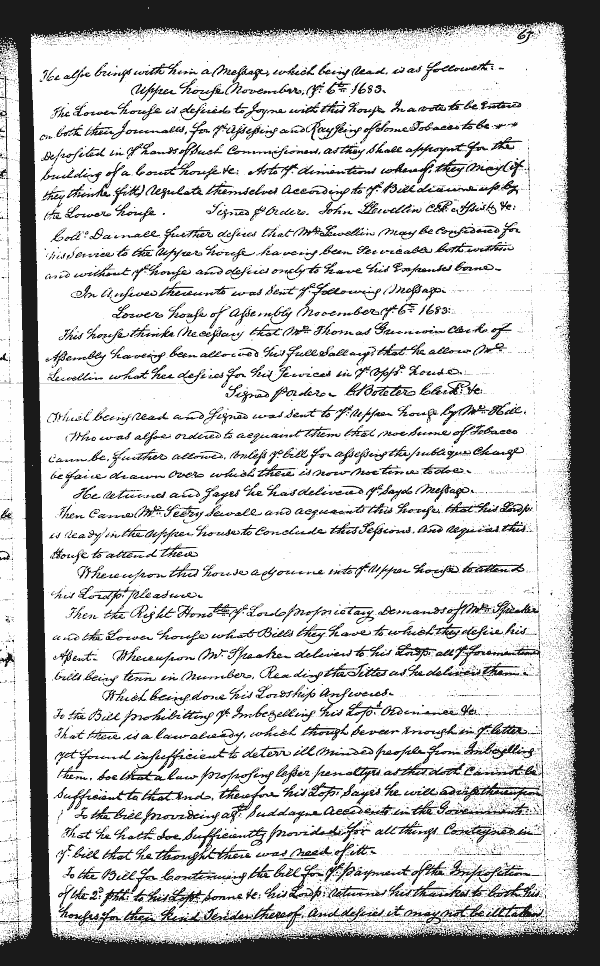 65
He alsoe brings with him a Message, which being read, is as followeth:-
Upper house November, yͤ 6ᵗʰ 1683.
The Lower house is desired to Joyne with this house In a vote to be Entered
on both their Journalls, for yͤ Assessing and Raysking of some Tobacco to be
Deposited in yͤ hands of Such Commissioners, as they Shall appoynt for the
building of a Court house &c: As to yͤ dimentions whereof, they may (if
they thinke fitt) Regulate themselves According to yͤ Bill drawne up by
the Lower house. Signed p Order. John Llewellin Clk: Assist: &c:
Collᵒ Darnall further desires that Mʳ Lewellin may be Considered for
his service to the Upper house having been Serviceable both within
and without yͤ house and desires only to have his Expenses borne.
In Answer thereunto was sent yͤ following Message
Lower house of Assembly November yͤ 6ᵗʰ 1683:
This house thinke Necessary that Mʳ Thomas Grunwin Clerke of
Assembly having been allowed his full Sallary that he allow Mʳ
Lewellin what hee desires for his Services in yͤ Uppʳ house.
Signed p Order. C Boteler Clerk: &c
Which being read and Signed was sent to yͤ Upper house by Mʳ Hill.
Who was alsoe ordered to acquaint them that noe Sume of Tobacco
Cann be, further allowed, Unless yͤ bill for assessing the publique Charge
be faire drawn over which there is now noe time to doe.
He returnes and Sayes he has delivered yͤ Sayd Message.
Then Came Mʳ Sewall and acquaints this house, that his Lordsp
is ready in the Upper house to Conclude this Sessions. And requires this
House to attend there
Whereupon this house adjourne into yͤ Upper house to attend
his Lordspˢ pleasure.
Then the Right Honᵇˡᵉ yͤ Lord Proprietary Demands of Mʳ Speaker
and the Lower house what Bills they have to which they desire his
Assent. Whereupon Mʳ Speaker delivers to his Lordsp: all yͤ forementioned
bills being tenn in Number, Reading the Titles as he delivers them.
Which being done his Lordship Answeres.
To the Bill prohibiting yͤ Imbezelling his Lopˢ Ordinance &c
That there is a law already, which though Severe enough in yͤ letter
yet found insufficient to deterr ill minded people from Imbezelling
them. Soe that a law proposing lesser penaltyes as this doth Cannot be
Sufficient to that End, therefore his Lopˢ: Sayes he will advise thereupon
To the bill provideing agˢᵗ Suddayne Accidents in the Government:
That he hath Soe Sufficiently provided for all things Conteyned in
yͤ bill that he thought there was need of itt.
To the Bill for Continuing the bill for yͤ payment of the Imposition
of the 2ˢ phh: to his Lopˢ: &c: his Lordsp: returnes his thankes to both his
houses for their kind Tender thereof. And desires it may not be ill taken